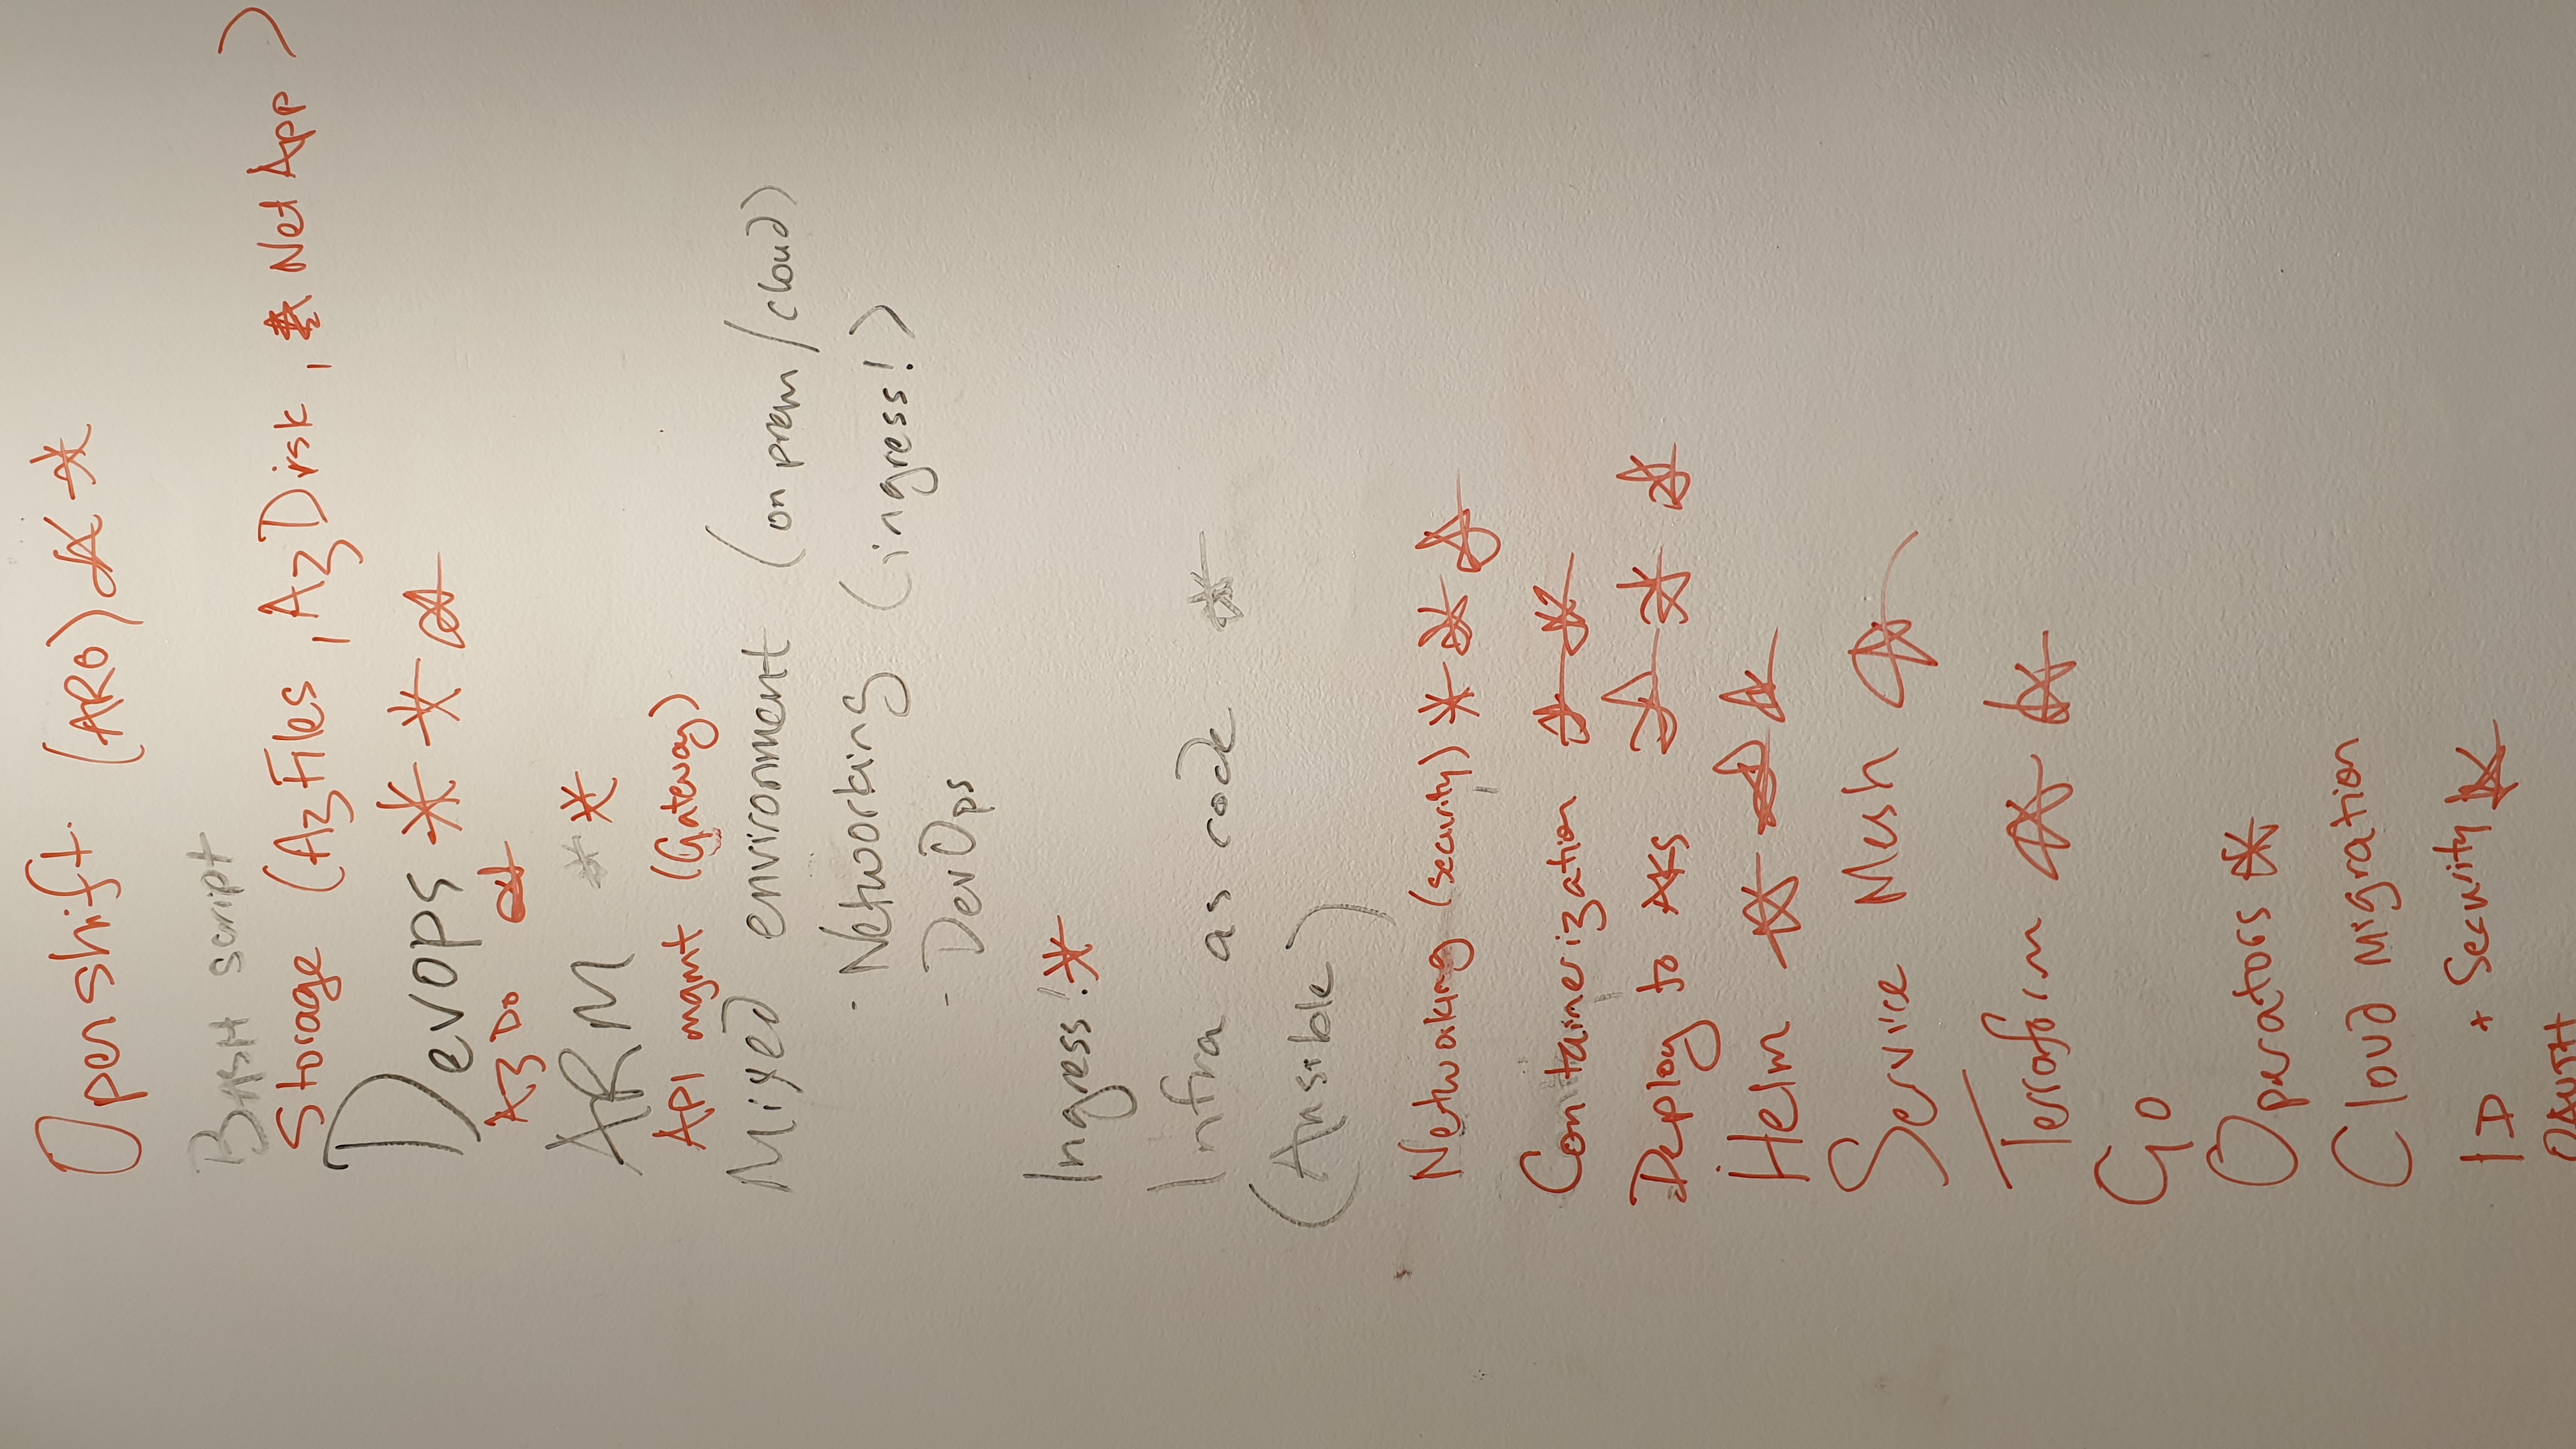 Openshift (ARO) * *
BASH script
Storage (AzFiles, AzDisk, NetApp)
Devops * * *
AzDo *
ARM * *
API mgmt (Gateway)
Mixed environment (on prem/cloud)
- Networking (ingress!)
- DevOps
Ingress! *
Infra as code *
(Ansible)
Networking (security) * * *
Containerization * *
Deploy to AKS * * *
Helm * * *
Service Mesh *
Terraform * *
Go
Operators *
Cloud migration
ID + Security *
OAUTH